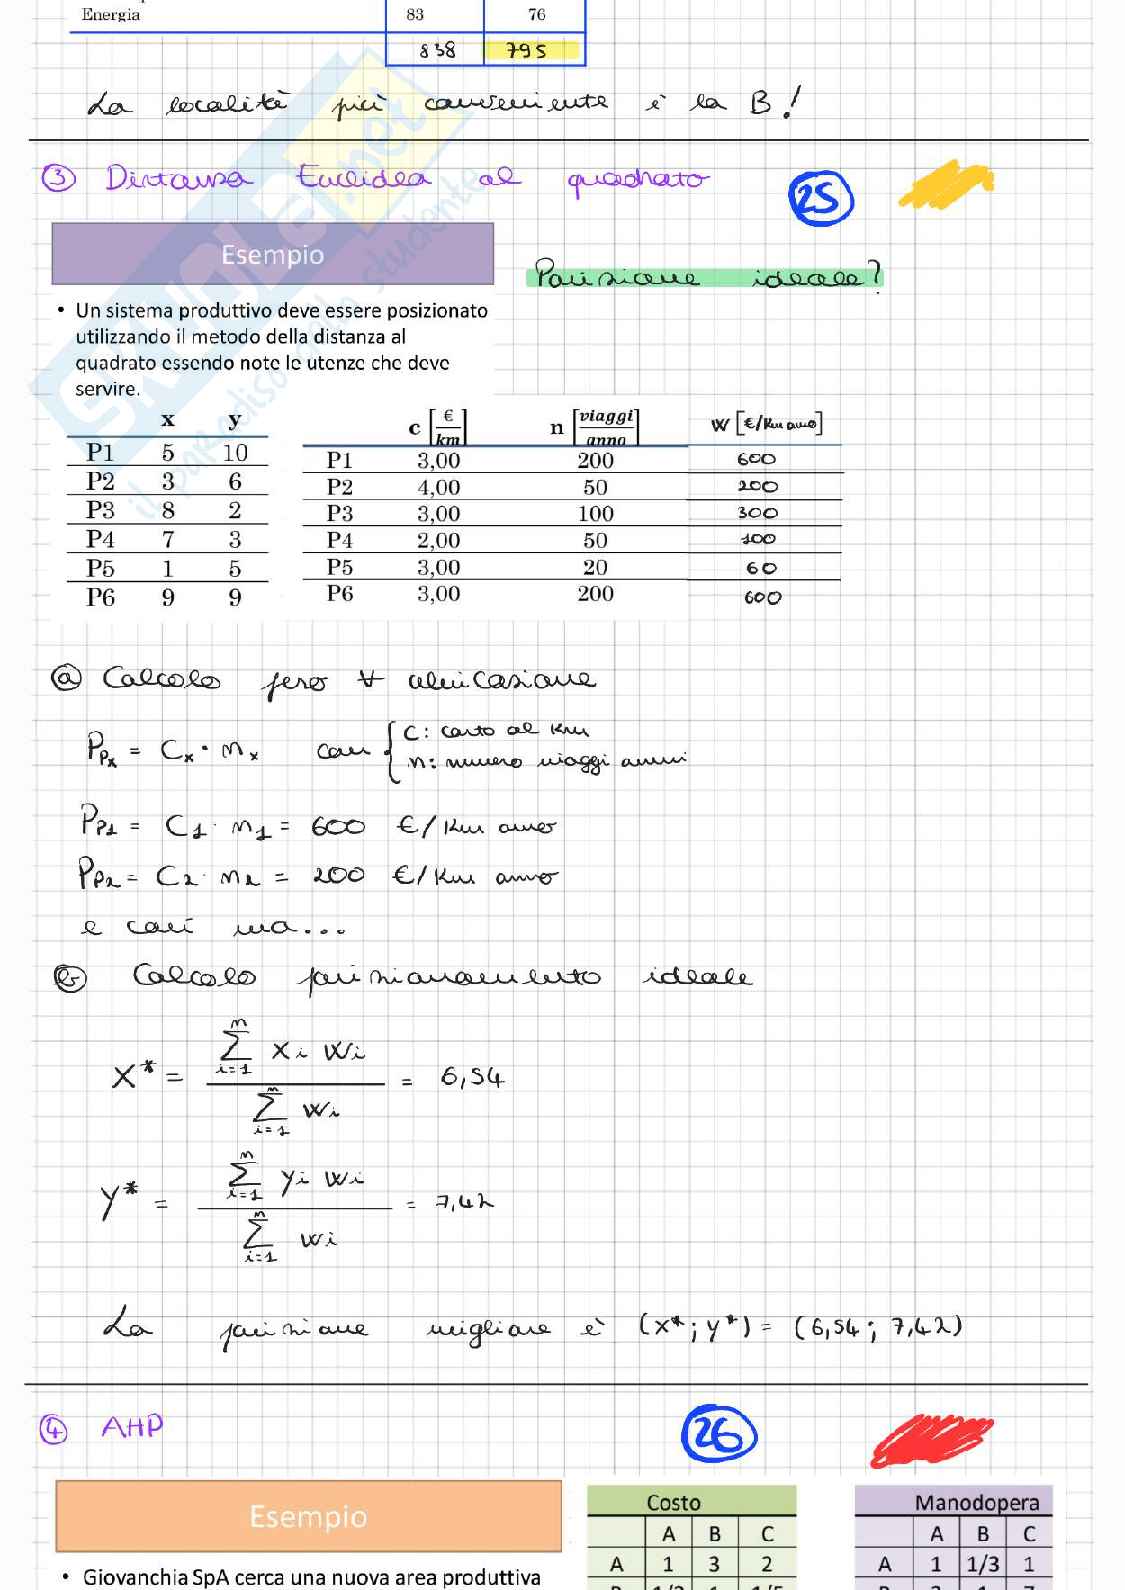 Energia 83 76
838 795
La località più conveniente è la B!
③ Distanza Euclidea al quadrato 25
Esempio
Posizione ideale?
• Un sistema produttivo deve essere posizionato
utilizzando il metodo della distanza al
quadrato essendo note le utenze che deve
servire.
x y
P1 5 10
P2 3 6
P3 8 2
P4 7 3
P5 1 5
P6 9 9
c [€/km] n [viaggi/anno] W [€/Km anno]
P1 3,00 200 600
P2 4,00 50 200
P3 3,00 100 300
P4 2,00 50 100
P5 3,00 20 60
P6 3,00 200 600
ⓐ Calcolo peso ∀ ubicazione
P_{Px} = C_x · n_x con { C: costo al Km
n: numero viaggi annui
P_{P1} = C_1 · n_1 = 600 €/Km anno
P_{P2} = C_2 · n_2 = 200 €/Km anno
e così via...
ⓑ Calcolo posizionamento ideale
X* = \frac{\sum_{i=1}^{n} x_i w_i}{\sum_{i=1}^{n} w_i} = 6,54
Y* = \frac{\sum_{i=1}^{n} y_i w_i}{\sum_{i=1}^{n} w_i} = 7,42
La posizione migliore è (X*; Y*) = (6,54; 7,42)
④ AHP 26
Esempio
• Giovanchia SpA cerca una nuova area produttiva
Costo
A B C
A 1 3 2
B 1/3 1 1/5
Manodopera
A B C
A 1 1/3 1
B 3 1 7
SKUOLA.net
il paradiso dello studente